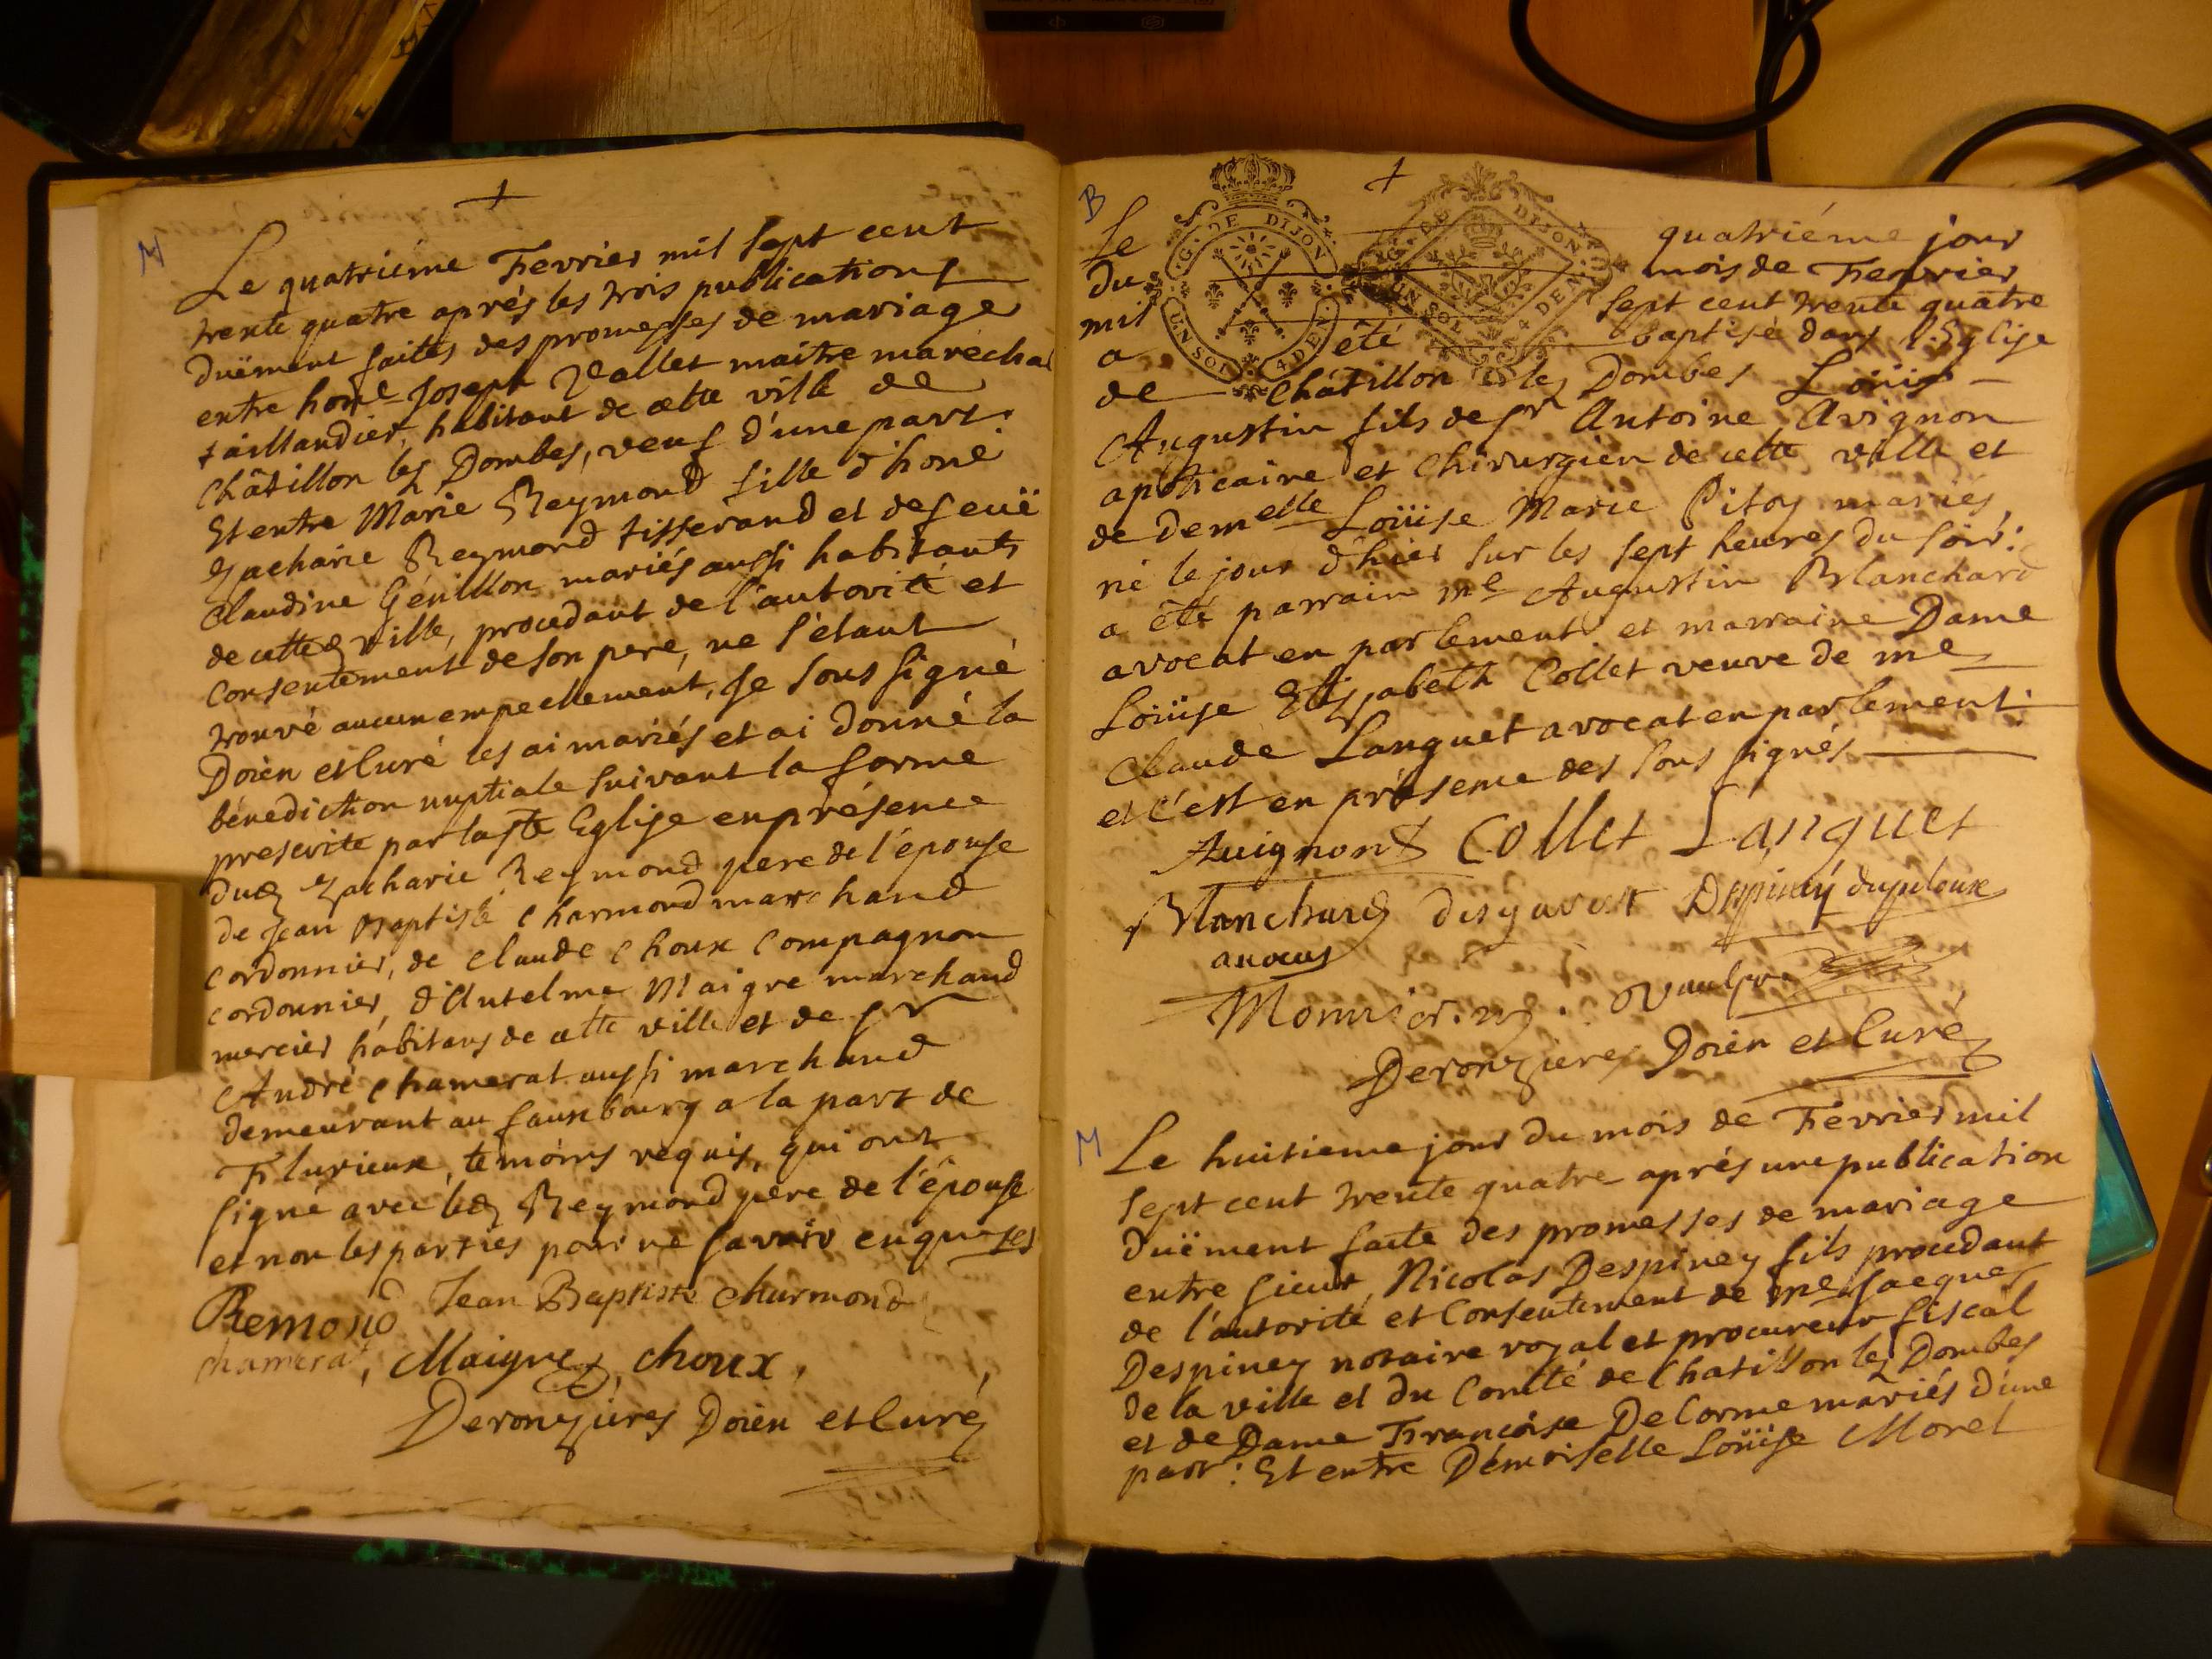 +
M
Le quatriéme Fevrier mil sept cent
trente quatre aprés les trois publications
duëment faites des promesses de mariage
entre hone Joseph Vallet maitre marécha
taillandier, habitant de cette ville de
Châtillon les Dombes, veuf d'une part.
Et entre Marie Reymond fille d'hone
Zacharie Reymond tisserand et de feuë
Claudine Génillon mariés aussi habitants
de cette ville, procedant de l'autorité et
consentement de son pere, ne s'étant
trouvé aucun empechement, je sous signé
Doïen et Curé les ai mariés et ai donné la
bénediction nuptiale suivant la forme
prescrite par la ste Eglise en présence
dud Zacharie Reymond pere de l'épouse
de Jean Baptiste Charmond marchand
cordonnier, de Claude Choux compagnon
cordonnier, d'Antelme Maigre marchand
mercier habitans de cette ville et de sr
André Chamerat aussi marchand
demeurant au fauxbourg a la part de
Flurieux, temoins requis, qui ont
signé avec led Reymond pere de l'épouse
et non les parties pour ne savoir enquises
Remond Jean Baptiste Charmond
chamerat, Maigre, choux,
Deronzieres Doïen et Curé
+
B
G. DE DIJON
UN SOL 4 DEN.
G. DE DIJON
UN SOL 4 DEN.
Le quatriéme jour
du mois de Fevrier
mil sept cent trente quatre
a été baptisé dans l'Eglise
de Châtillon les Dombes Loüis
Augustin fils de sr Antoine Avignon
apoticaire et Chirurgien de cette ville et
de Demelle Loüise Marie Pitoy mariés,
né le jour d'hier sur les sept heures du soir:
a été parrain me Augustin Blanchard
avocat en parlement et marraine Dame
Loüise Elisabeth Collet veuve de me
Claude Languet avocat en parlement:
et c'est en présence des sous signés
Avignon Collet Languet
Blanchard
avocat
Deronzieres Doïen et Curé
M
Le huitieme jour du mois de Février mil
sept cent trente quatre aprés une publication
duëment faite des promesses de mariage
entre sieur Nicolas Despiney fils procedant
de l'autorité et Consentement de me Jacques
Despiney notaire royal et procureur fiscal
de la ville et du Comté de Chatillon les Dombes
et de Dame Francoise DeLorme mariés d'une
part: Et entre Démoiselle Loüise Morel